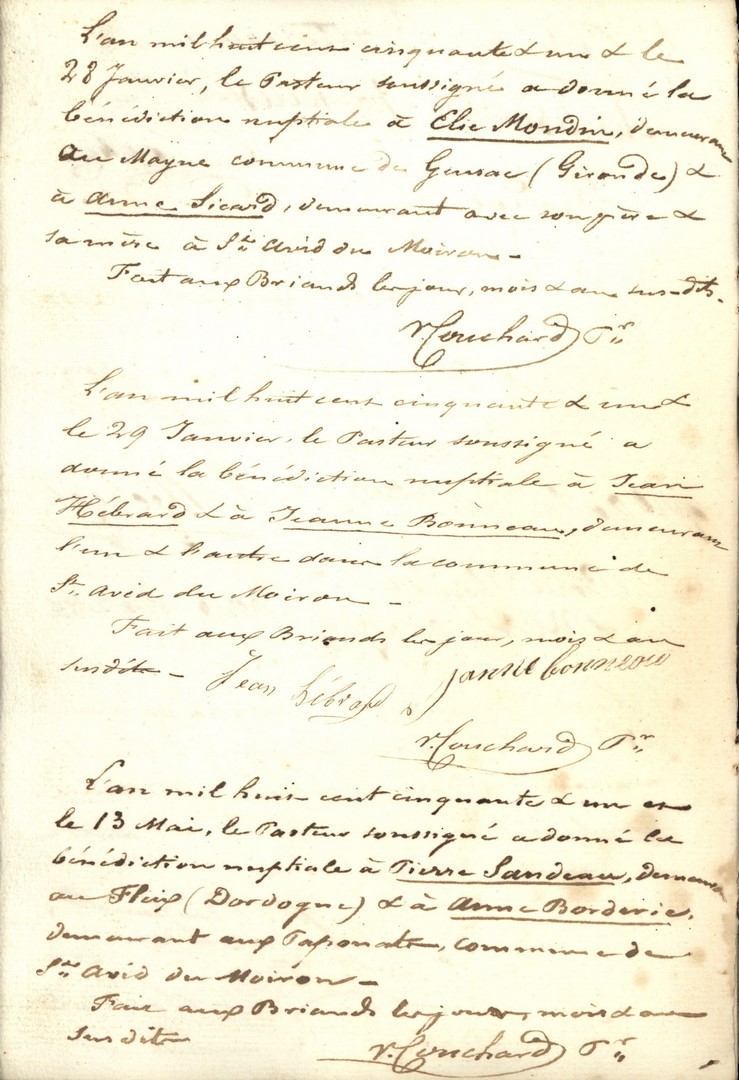 L'an mil huit cent cinquante & un & le
28 Janvier, le Pasteur soussigné a donné la
bénédiction nuptiale à Elie Mondin, demeurant
au Mayne commune de Gensac (Gironde) &
à Anne Sicard, demeurant avec son père &
sa mère à St. Avid du Moiron -
Fait aux Briands les jour, mois & an sus-dits.
V. Couchard Pr.
L'an mil huit cent cinquante & un &
le 29 Janvier, le Pasteur soussigné a
donné la bénédiction nuptiale à Jean
Hébrard & à Jeanne Bonneau, demeurant
l'un & l'autre dans la commune de
St. Avid du Moiron -
Fait aux Briands les jour, mois & an
susdits - Jean hébrard janne bonneau
V. Couchard Pr.
L'an mil huit cent cinquante & un et
le 13 Mai, le Pasteur soussigné a donné la
bénédiction nuptiale à Pierre Sandeau, demeurant
au Fleix (Dordogne) & à Anne Borderie,
demeurant aux Taponats, commune de
St. Avid du Moiron -
Fait aux Briands les jour, mois & an
susdits
V. Couchard Pr.